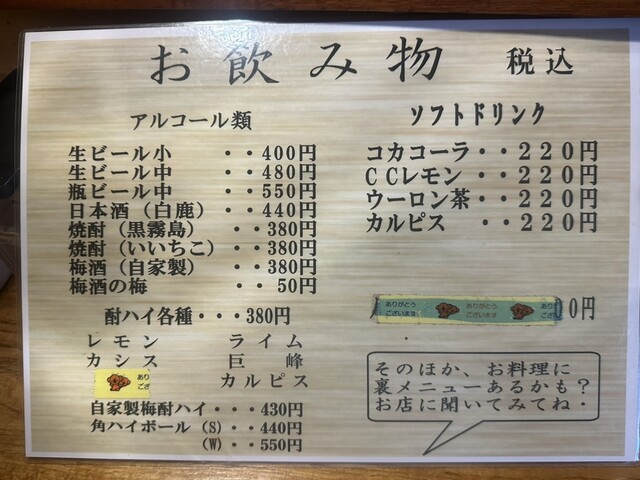 お飲み物 税込
アルコール類
生ビール小 ・・400円
生ビール中 ・・480円
瓶ビール中 ・・550円
日本酒（白鹿） ・・440円
焼酎（黒霧島） ・・380円
焼酎（いいちこ）・・380円
梅酒（自家製） ・・380円
梅酒の梅 ・・ 50円
酎ハイ各種・・・380円
レモン ライム
カシス 巨峰
あり
ござ
カルピス
自家製梅酎ハイ・・・430円
角ハイボール（S）・・440円
（W）・・550円
ソフトドリンク
コカコーラ・・220円
CCレモン・・220円
ウーロン茶・・220円
カルピス ・・220円
ありがとう ありがとう ありが
ございます ございます ござい
0円
そのほか、お料理に
裏メニューあるかも？
お店に聞いてみてね・